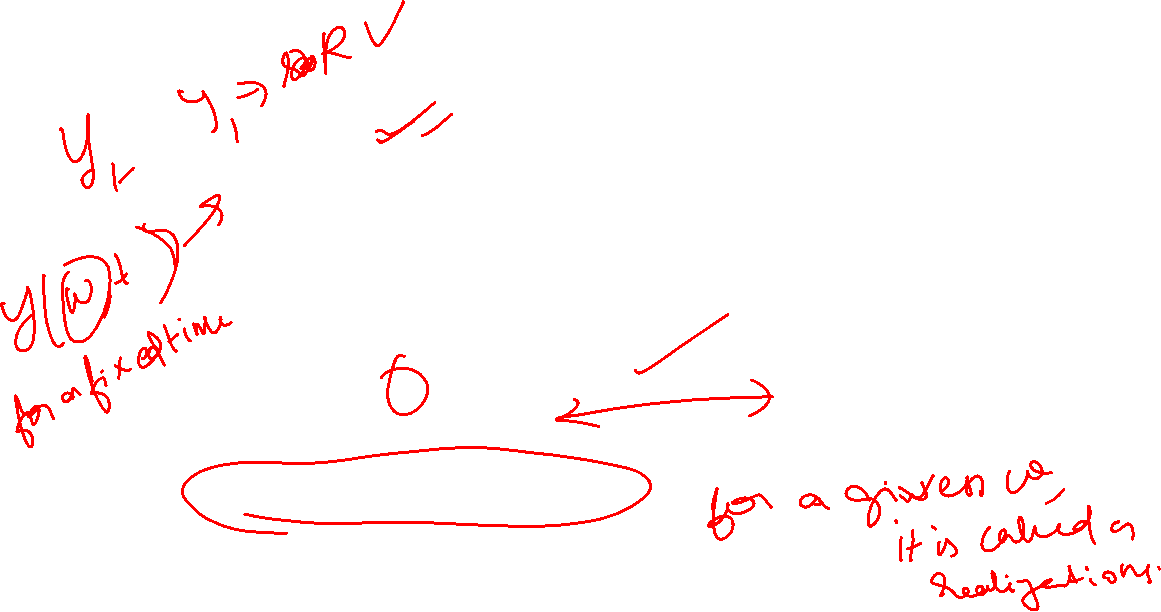 y₁ → R ✓
y₁
y(ω t)
for a fixed time
for a given ω,
it is called a
realizations.